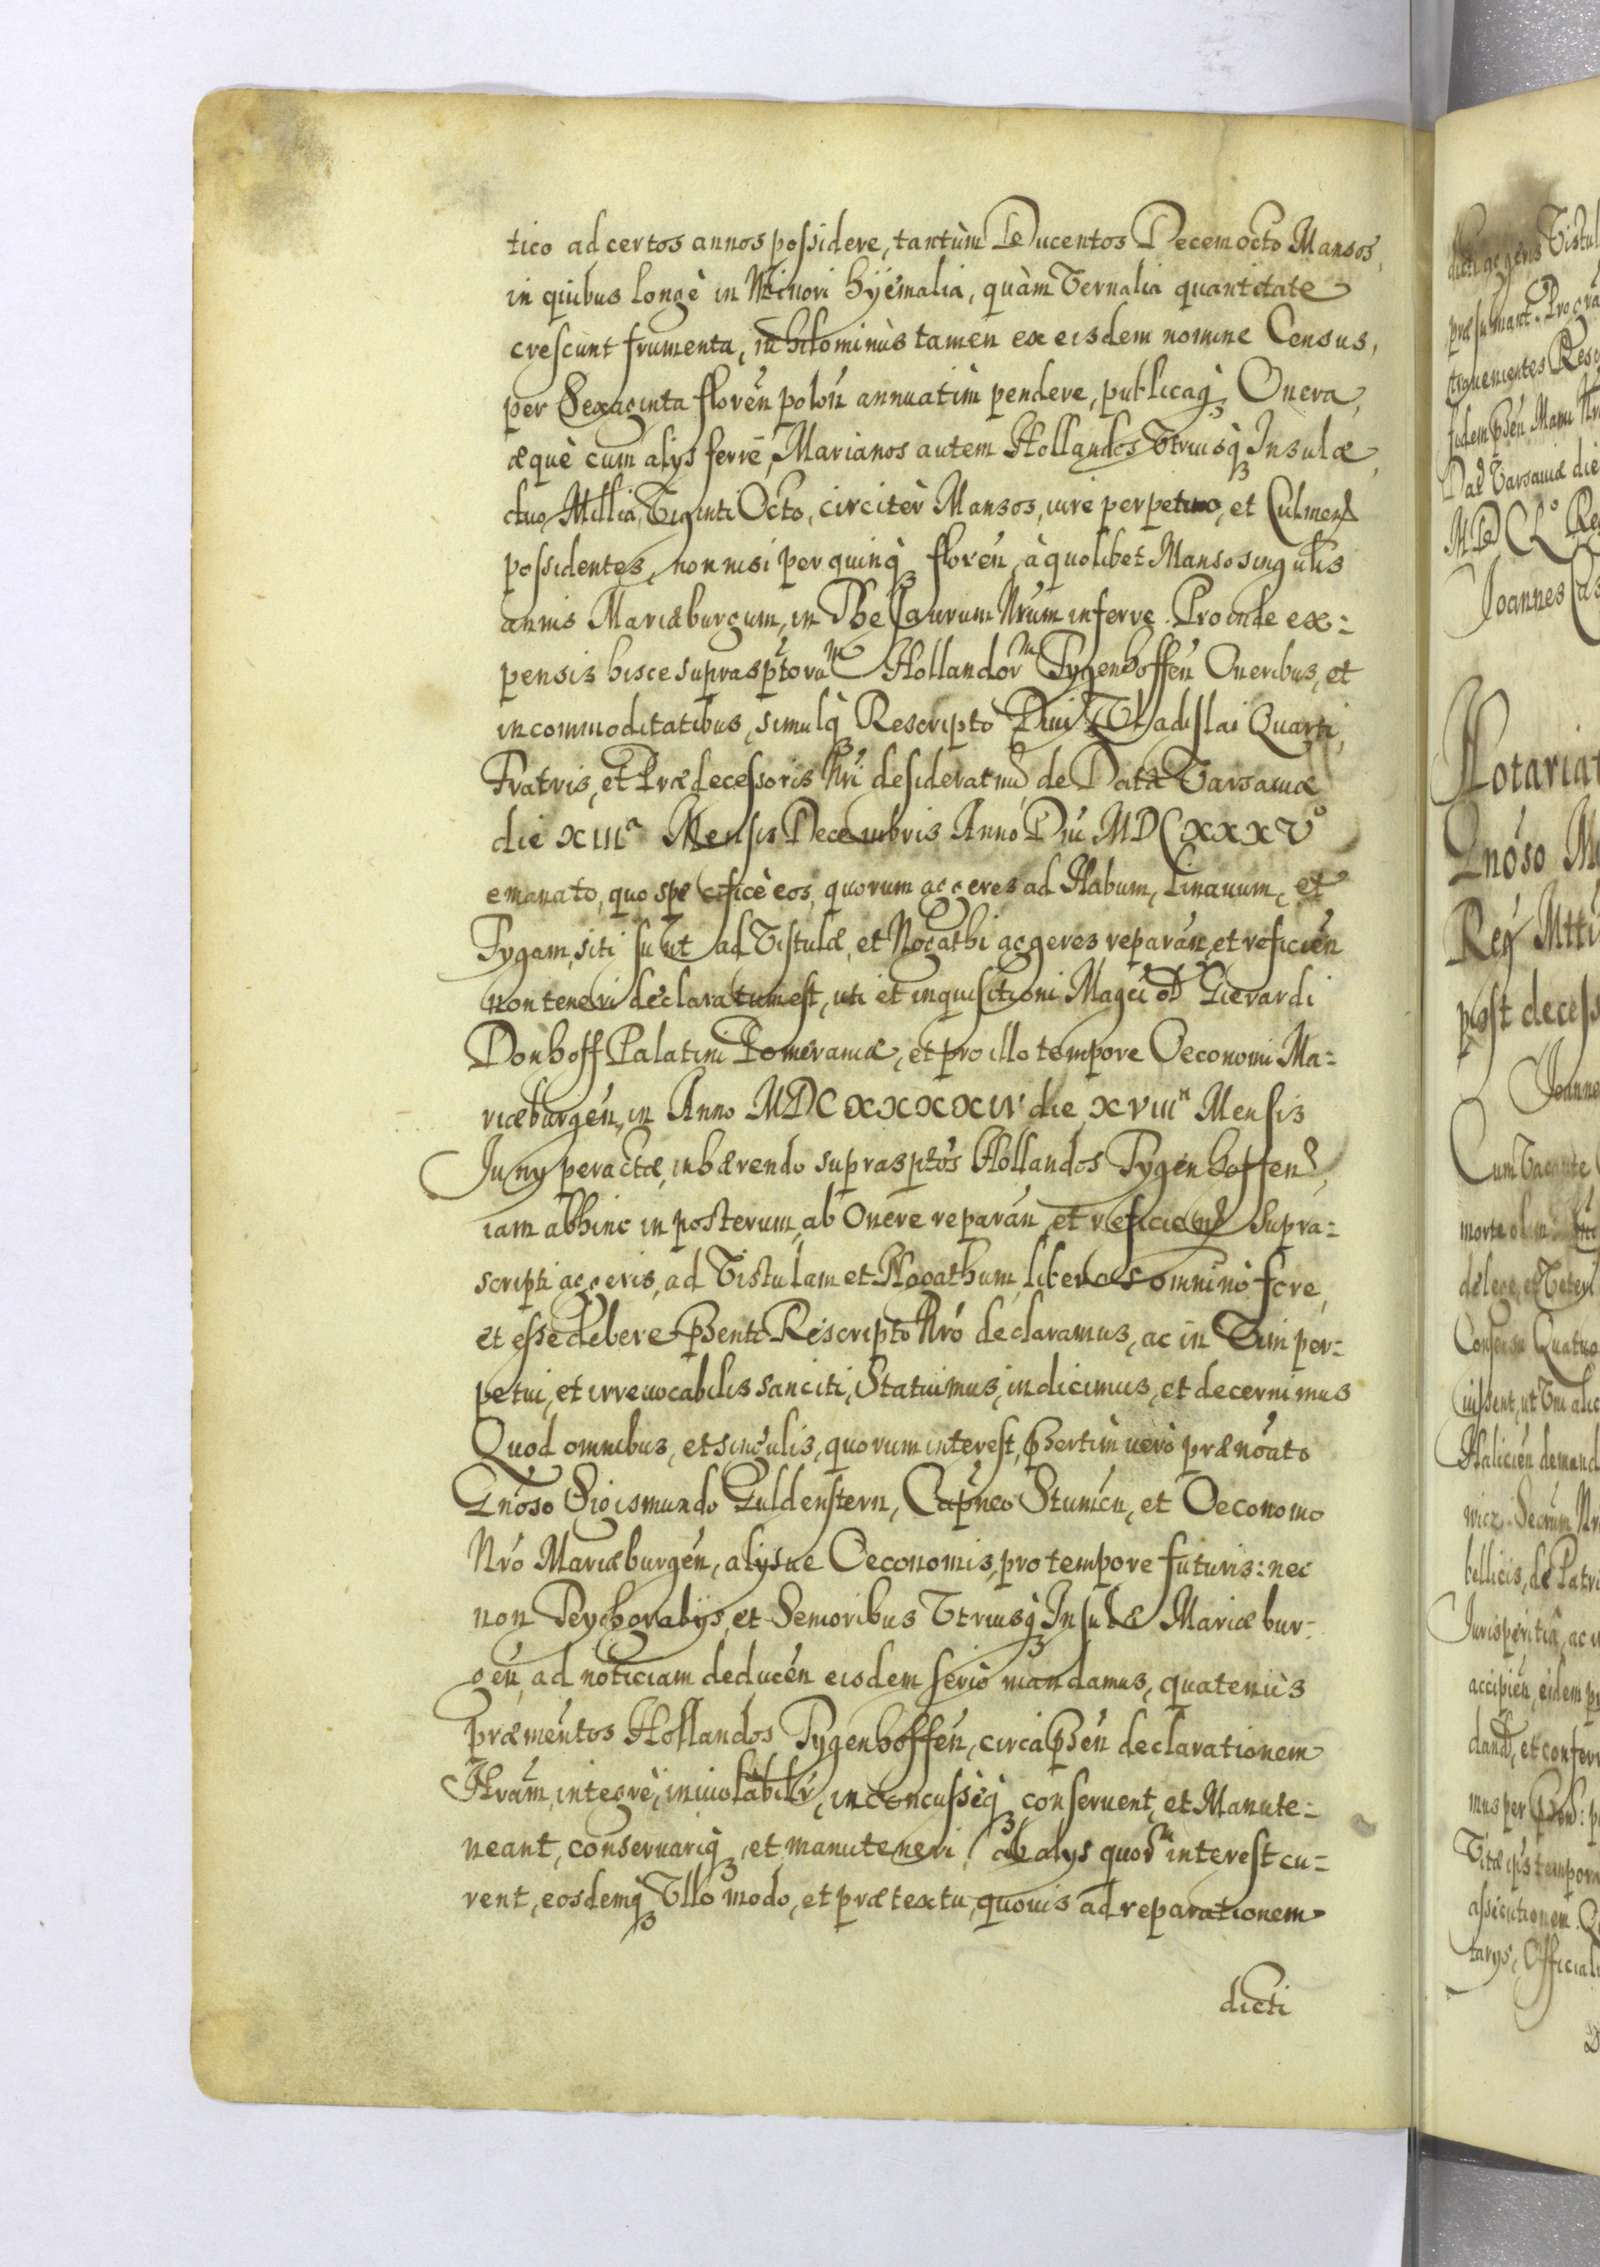 tico ad certos annos possidere, tantùm Ducentos Decem octo Mansos,
in quibus longè in Minori hyemalia, quàm Vernalia quantitate
crescunt frumenta, nihilominùs tamen ex eisdem nomine Census,
per Sexaginta florēn polōn annuatim pendere, publicaq3 Onera,
æquè cum alys ferre, Marianos autem Hollandos Utriusq3 Insulæ,
duo Millia, Viginti Octo, circitèr Mansos, iure perpetuo, et Culmen
possidentes, non nisi per quinq3 florēn, à quolibet Manso singulis
annis Mariæburgum, in Thesaurum Nrum inferre. Proinde ex:
pensis hisce suprasptorum Hollandorm Tygenhoffēn Oneribus, et
incommoditatibus, simulq3 Rescripto Divi Vladislai Quarti,
Fratris, et Prædecessoris Nri desideratmi, de Data Varsauiæ
die XIIIa Mensis Decembris Anno Dni MDCXXXVo
emanato, quo specificè eos, quorum aggeres ad Habum, Linauum, et
Tygam, siti sunt ad Vistulæ, et Nogathi aggeres reparān, et reficiēn
non teneri declaratum est, uti et inquisitioni Magci olim Gierardi
Donhoff Palatini Pomeraniæ, et pro illo tempore Oeconomi Ma:
riæburgēn, in Anno MDCXXXXIV die XVIIIa Mensis
Juny peractæ, inhærendo suprasptos Hollandos Tygenhoffen,
iam abhinc in posterum, ab Onere reparān, et reficien Supra:
scripti aggeris, ad Vistulam et Nogathum, liberos omninò fore,
et esse debere psenti Rescripto Nro declaramus, ac in Vim per:
petui, et irreuocabilis sanciti, Statuimus, indicimus, et decernimus
Quod omnibus, et singulis, quorum interest, psertim verò prænoato
Gnoso Sigismundo Guldenstern, Capneo Stumēn, et Oeconomo
Nro Mariæburgēn, alysue Oeconomis, pro tempore futuris: nec
non Teychgrabys, et Senioribus Utriusq3 Insulæ Mariæbur:
gēn, ad noticiam deducēn eisdem seriò mandamus, quatenùs
præmentos Hollandos Tygenhoffēn, circa psēn declarationem
Nram, integrè, inuiolabilr, inconcussèq3 conseruent, et Manute:
neant, conseruariq3, et manuteneri, ab alys quorm interest cu:
rent, eosdemq3 Ullo modo, et prætextu, quouis ad reparationem
dicti